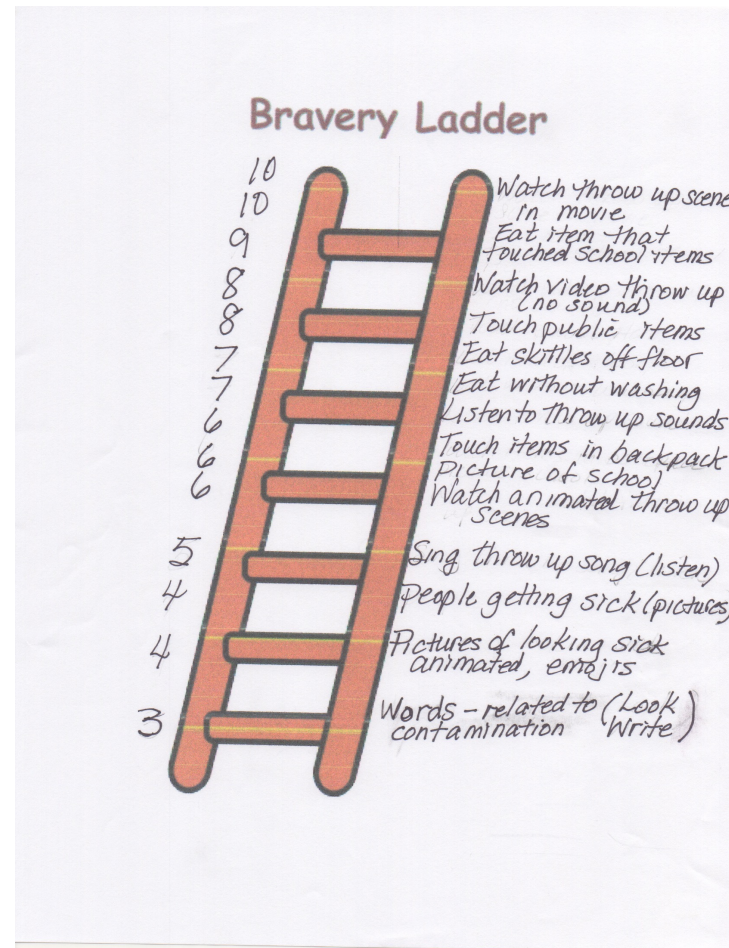 Bravery Ladder
10 Watch throw up scene
in movie
10 Eat item that
touched school items
9 Watch video throw up
(no sound)
8 Touch public items
8 Eat skittles off floor
7 Eat without washing
7 Listen to throw up sounds
6 Touch items in backpack
6 Picture of school
6 Watch animated throw up
scenes
5 Sing throw up song (listen)
4 People getting sick (pictures)
4 Pictures of looking sick
animated, emojis
3 Words - related to (Look
contamination Write)